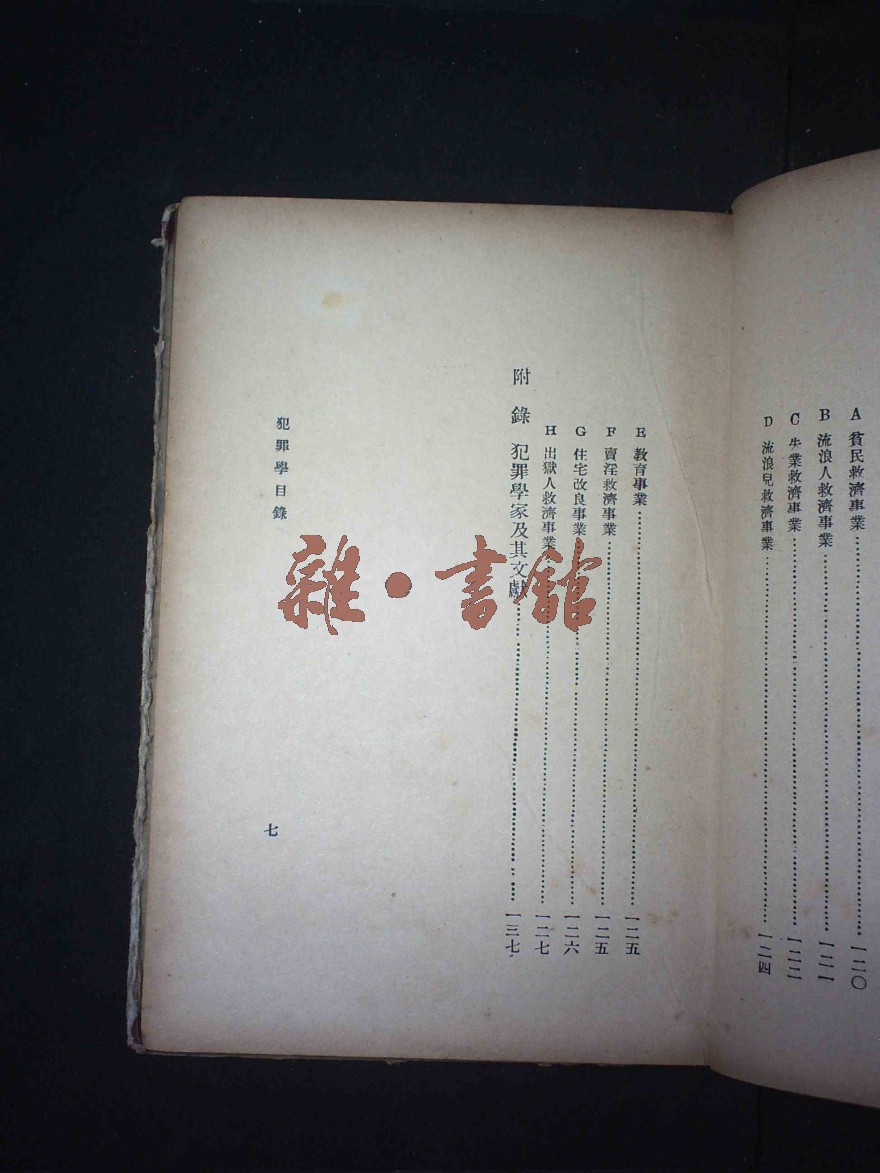 A 貧民救濟事業……一二〇
B 流浪人救濟事業……一二一
C 失業救濟事業……一二二
D 流浪兒救濟事業……一二四
E 教育事業……一二五
F 賣淫救濟事業……一二五
G 住宅改良事業……一二六
H 出獄人救濟事業……一二七
附錄 犯罪學家及其文獻……一三七
犯罪學目錄
七
雜·書館